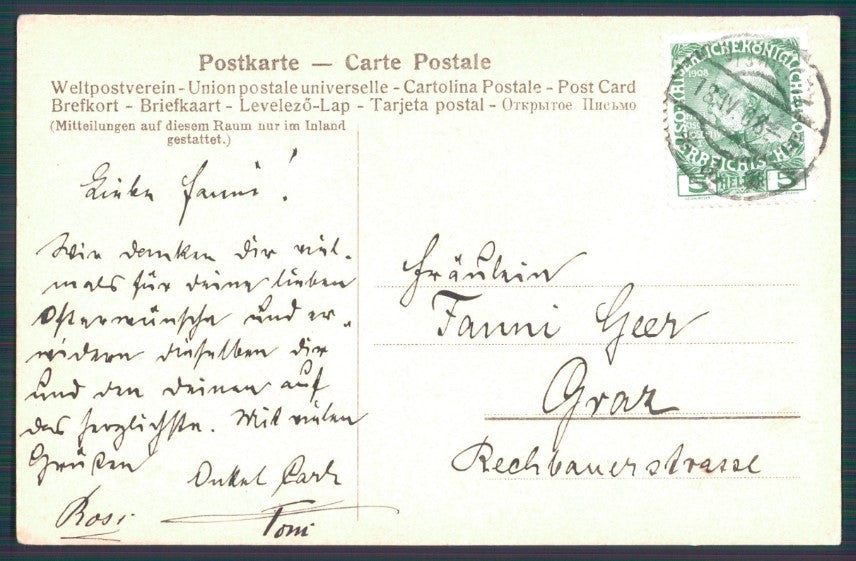 Postkarte — Carte Postale
Weltpostverein - Union postale universelle - Cartolina Postale - Post Card
Brefkort - Briefkaart - Levelező-Lap - Tarjeta postal - Открытое Письмо
(Mitteilungen auf diesem Raum nur im Inland
gestattet.)
1908
5 HELLER 5
18.IV.08
Liebe Fanni!
Wir danken dir viel-
mals für deine lieben
Osterwünsche und er-
widern dieselben dir
und den deinen auf
das herzlichste. Mit vielen
Grüßen
Onkel Carl
Rosi
Toni
Fräulein
Fanni Geer
Graz
Rechbauerstrasse